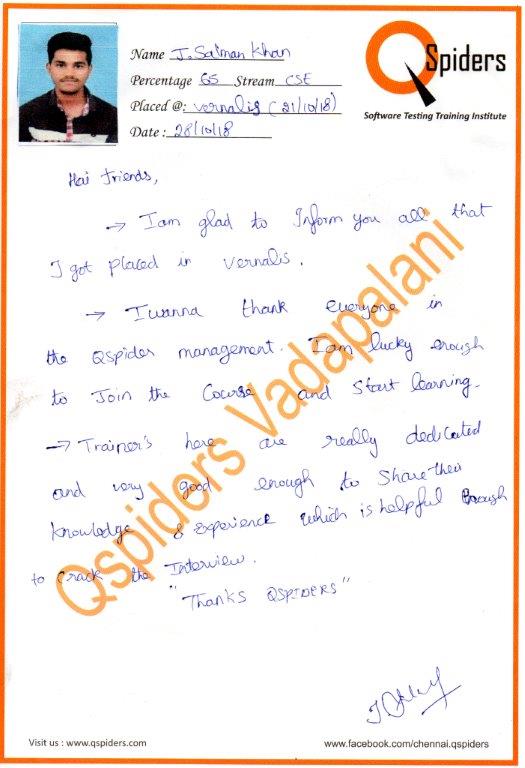 Name J. Salman Khan
Percentage 65 Stream CSE
Placed @: Vernalis (21/10/18)
Date : 28/10/18
QSpiders
Software Testing Training Institute
Hai friends,
→ Iam glad to Inform you all that
I got placed in vernalis.
→ Iwanna thank everyone in
the QSpider management. Iam lucky enough
to Join the Course and Start learning.
→ Trainer's here are really dedicated
and very good enough to Share their
knowledge & experience which is helpful
to crack the Interview.
"Thanks QSPIDERS"
Qspiders Vadapalani
Visit us : www.qspiders.com
www.facebook.com/chennai.qspiders